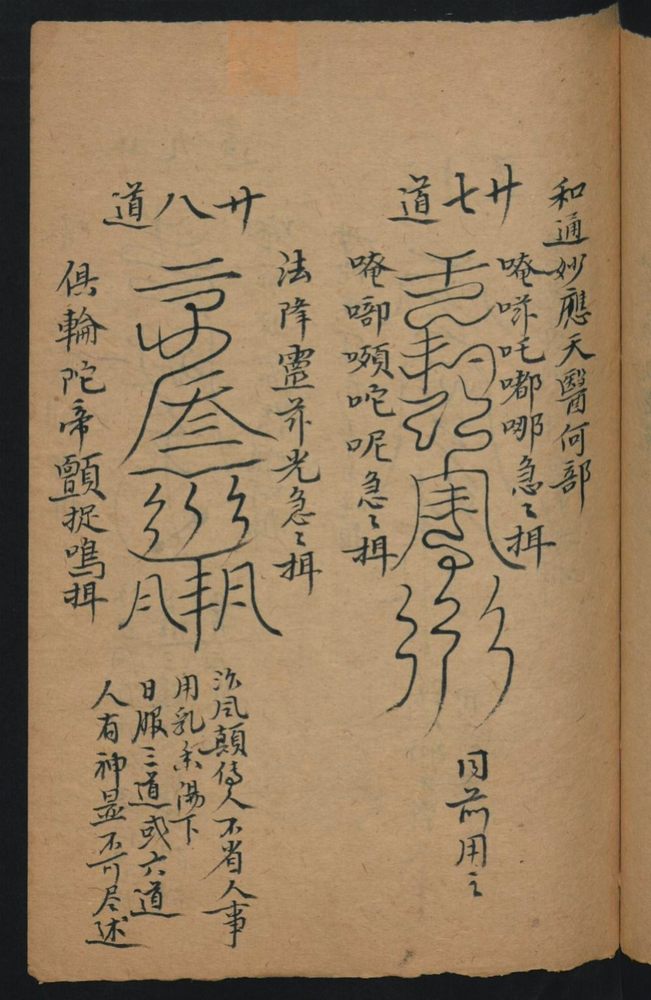 和通妙應天醫何部
廿七道
唵㖅吒嘟哪急々揖
唵唧嚬咜呢急々揖
同前用之
廿八道
法降靈 光急々揖
俱輪陀帝顫捉鳴揖
治風顛傷人不省人事
用乳香湯下
日服三道或六道
人有神 不可尽述